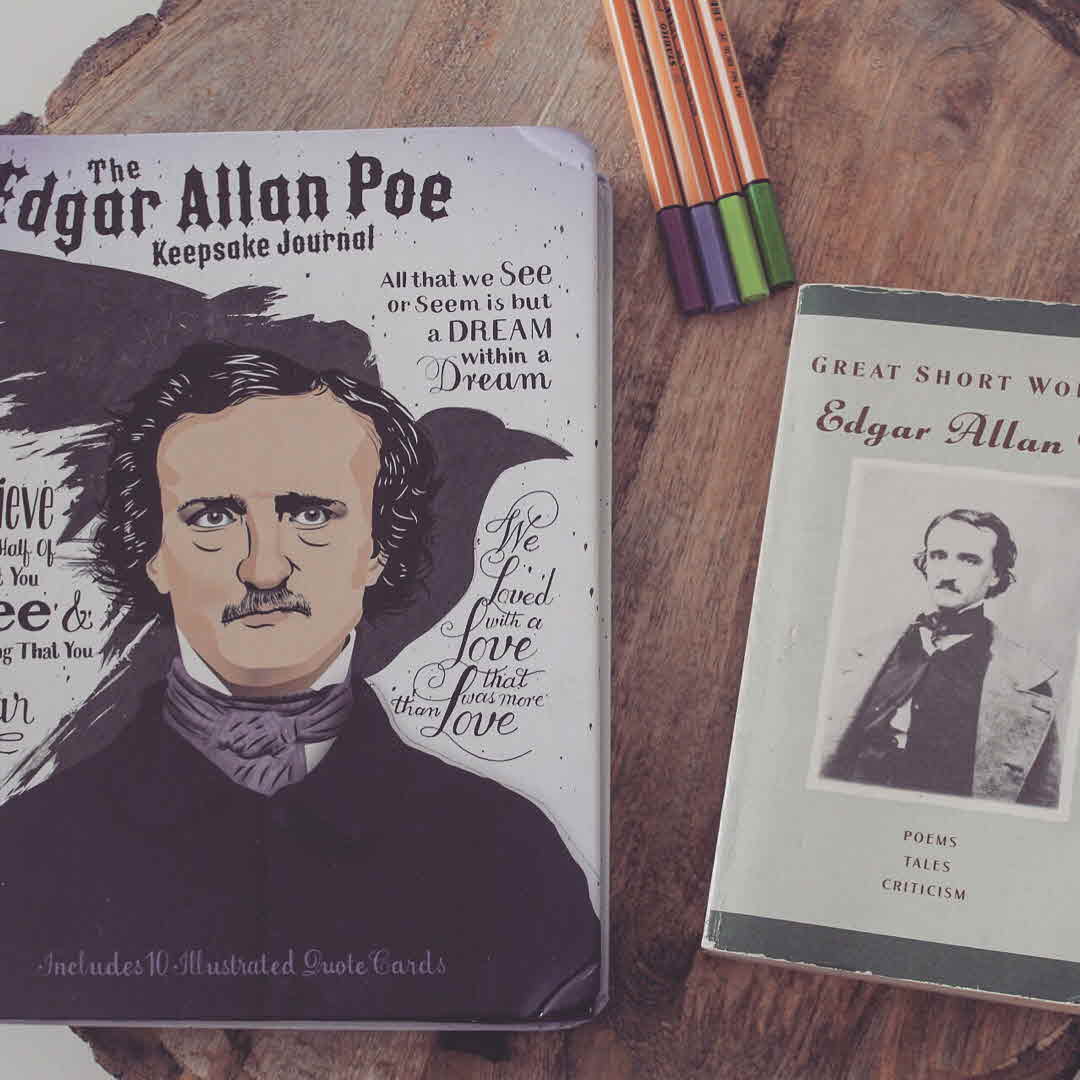 The
Edgar Allan Poe
Keepsake Journal
All that we See
or Seem is but
a DREAM
within a
Dream
ieve
Half Of
t You
ee &
ng That You
ar
We
Loved
with a
Love
that
was more
than Love
Includes 10 Illustrated Quote Cards
STABILO
GREAT SHORT WO
Edgar Allan
POEMS
TALES
CRITICISM